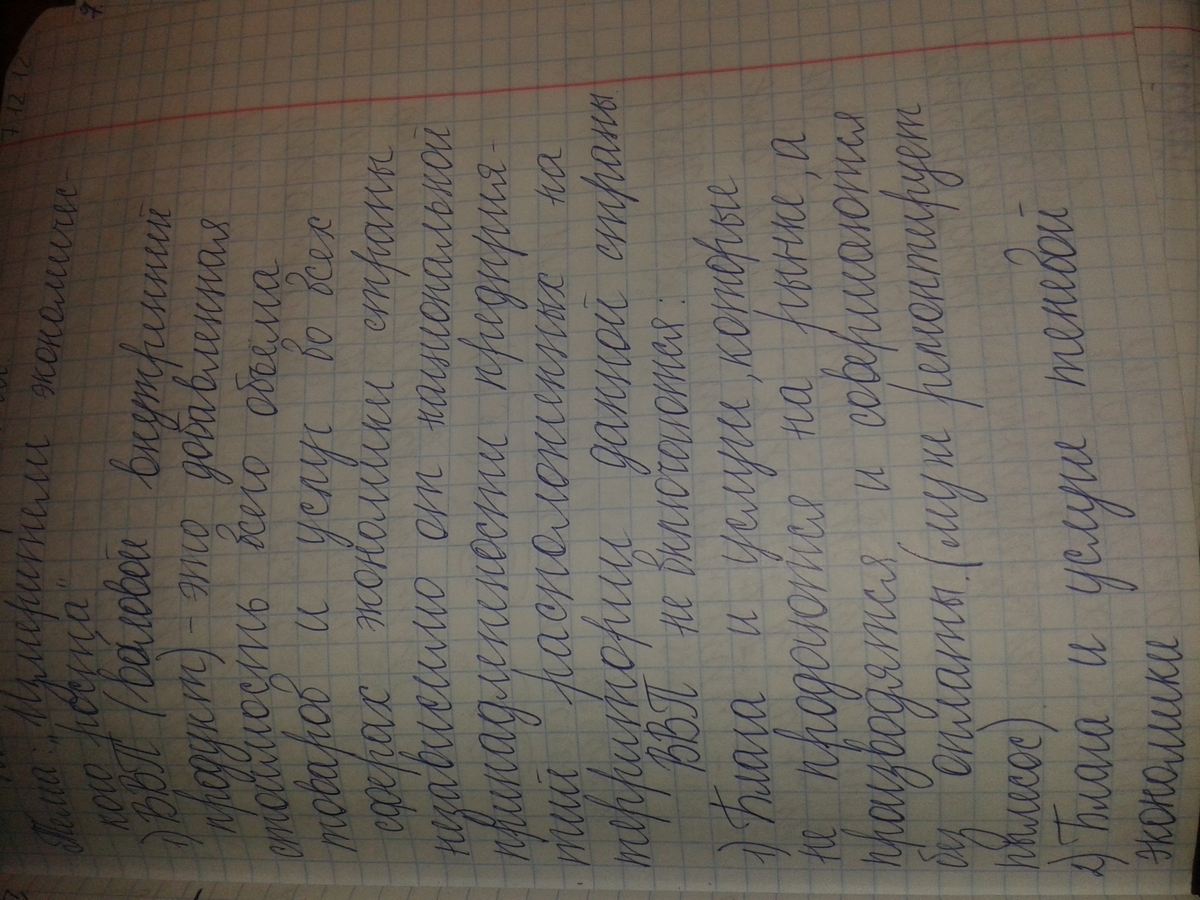 7.12.12
Тема: „Измерители экономичес-
кого роста"
1) ВВП (валовой внутренний
продукт) – это добавленная
стоимость всего объёма
товаров и услуг во всех
сферах экономики страны
независимо от национальной
принадлежности предприя-
тий расположенных на
территории данной страны
ВВП не включаются:
1) Блага и услуги, которые
не продаются на рынке, а
производятся и совершаются
без оплаты. (муж ремонтирует
пылесос)
2) Блага и услуги теневой
экономики